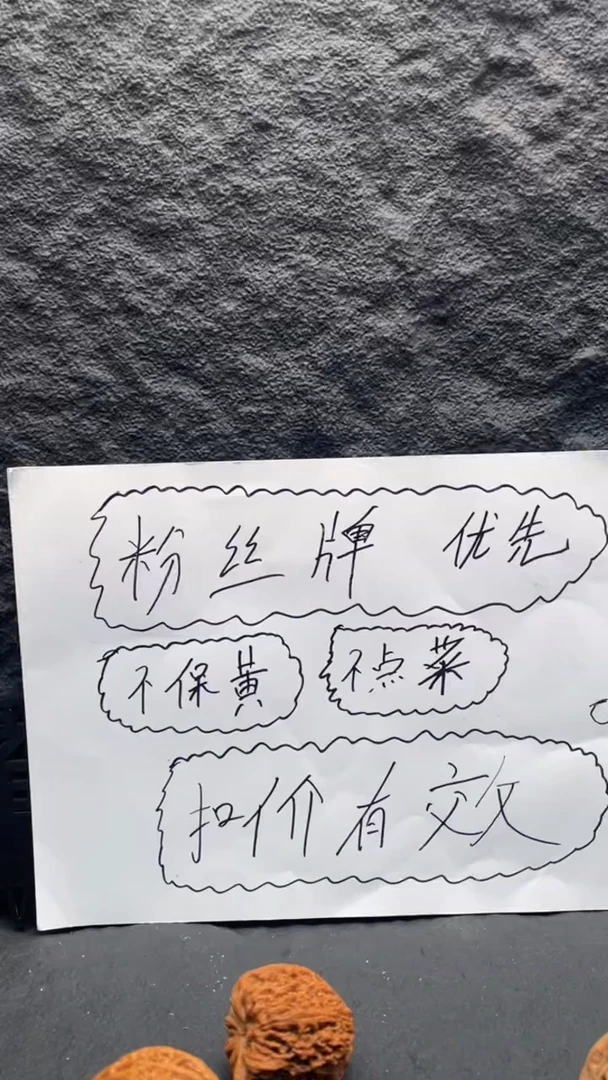 粉丝牌 优先
不保黄 不点菜
扣价有效